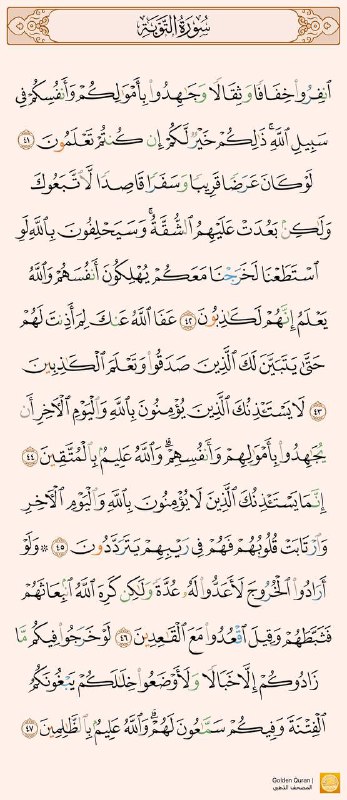 سُورَةُ التَّوْبَةِ
ٱنفِرُوا۟ خِفَافًا وَثِقَالًا وَجَٰهِدُوا۟ بِأَمْوَٰلِكُمْ وَأَنفُسِكُمْ فِى
سَبِيلِ ٱللَّهِ ۚ ذَٰلِكُمْ خَيْرٌ لَّكُمْ إِن كُنتُمْ تَعْلَمُونَ ٤١
لَوْ كَانَ عَرَضًا قَرِيبًا وَسَفَرًا قَاصِدًا لَّٱتَّبَعُوكَ
وَلَٰكِنۢ بَعُدَتْ عَلَيْهِمُ ٱلشُّقَّةُ ۚ وَسَيَحْلِفُونَ بِٱللَّهِ لَوِ
ٱسْتَطَعْنَا لَخَرَجْنَا مَعَكُمْ يُهْلِكُونَ أَنفُسَهُمْ وَٱللَّهُ
يَعْلَمُ إِنَّهُمْ لَكَٰذِبُونَ ٤٢ عَفَا ٱللَّهُ عَنكَ لِمَ أَذِنتَ لَهُمْ
حَتَّىٰ يَتَبَيَّنَ لَكَ ٱلَّذِينَ صَدَقُوا۟ وَتَعْلَمَ ٱلْكَٰذِبِينَ
٤٣ لَا يَسْتَـْٔذِنُكَ ٱلَّذِينَ يُؤْمِنُونَ بِٱللَّهِ وَٱلْيَوْمِ ٱلْءَاخِرِ أَن
يُجَٰهِدُوا۟ بِأَمْوَٰلِهِمْ وَأَنفُسِهِمْ ۗ وَٱللَّهُ عَلِيمٌۢ بِٱلْمُتَّقِينَ ٤٤
إِنَّمَا يَسْتَـْٔذِنُكَ ٱلَّذِينَ لَا يُؤْمِنُونَ بِٱللَّهِ وَٱلْيَوْمِ ٱلْءَاخِرِ
وَٱرْتَابَتْ قُلُوبُهُمْ فَهُمْ فِى رَيْبِهِمْ يَتَرَدَّدُونَ ٤٥ ۞ وَلَوْ
أَرَادُوا۟ ٱلْخُرُوجَ لَأَعَدُّوا۟ لَهُۥ عُدَّةً وَلَٰكِن كَرِهَ ٱللَّهُ ٱنۢبِعَاثَهُمْ
فَثَبَّطَهُمْ وَقِيلَ ٱقْعُدُوا۟ مَعَ ٱلْقَٰعِدِينَ ٤٦ لَوْ خَرَجُوا۟ فِيكُم مَّا
زَادُوكُمْ إِلَّا خَبَالًا وَلَأَوْضَعُوا۟ خِلَٰلَكُمْ يَبْغُونَكُمُ
ٱلْفِتْنَةَ وَفِيكُمْ سَمَّٰعُونَ لَهُمْ ۗ وَٱللَّهُ عَلِيمٌۢ بِٱلظَّٰلِمِينَ ٤٧
Golden Quran |
المصحف الذهبي